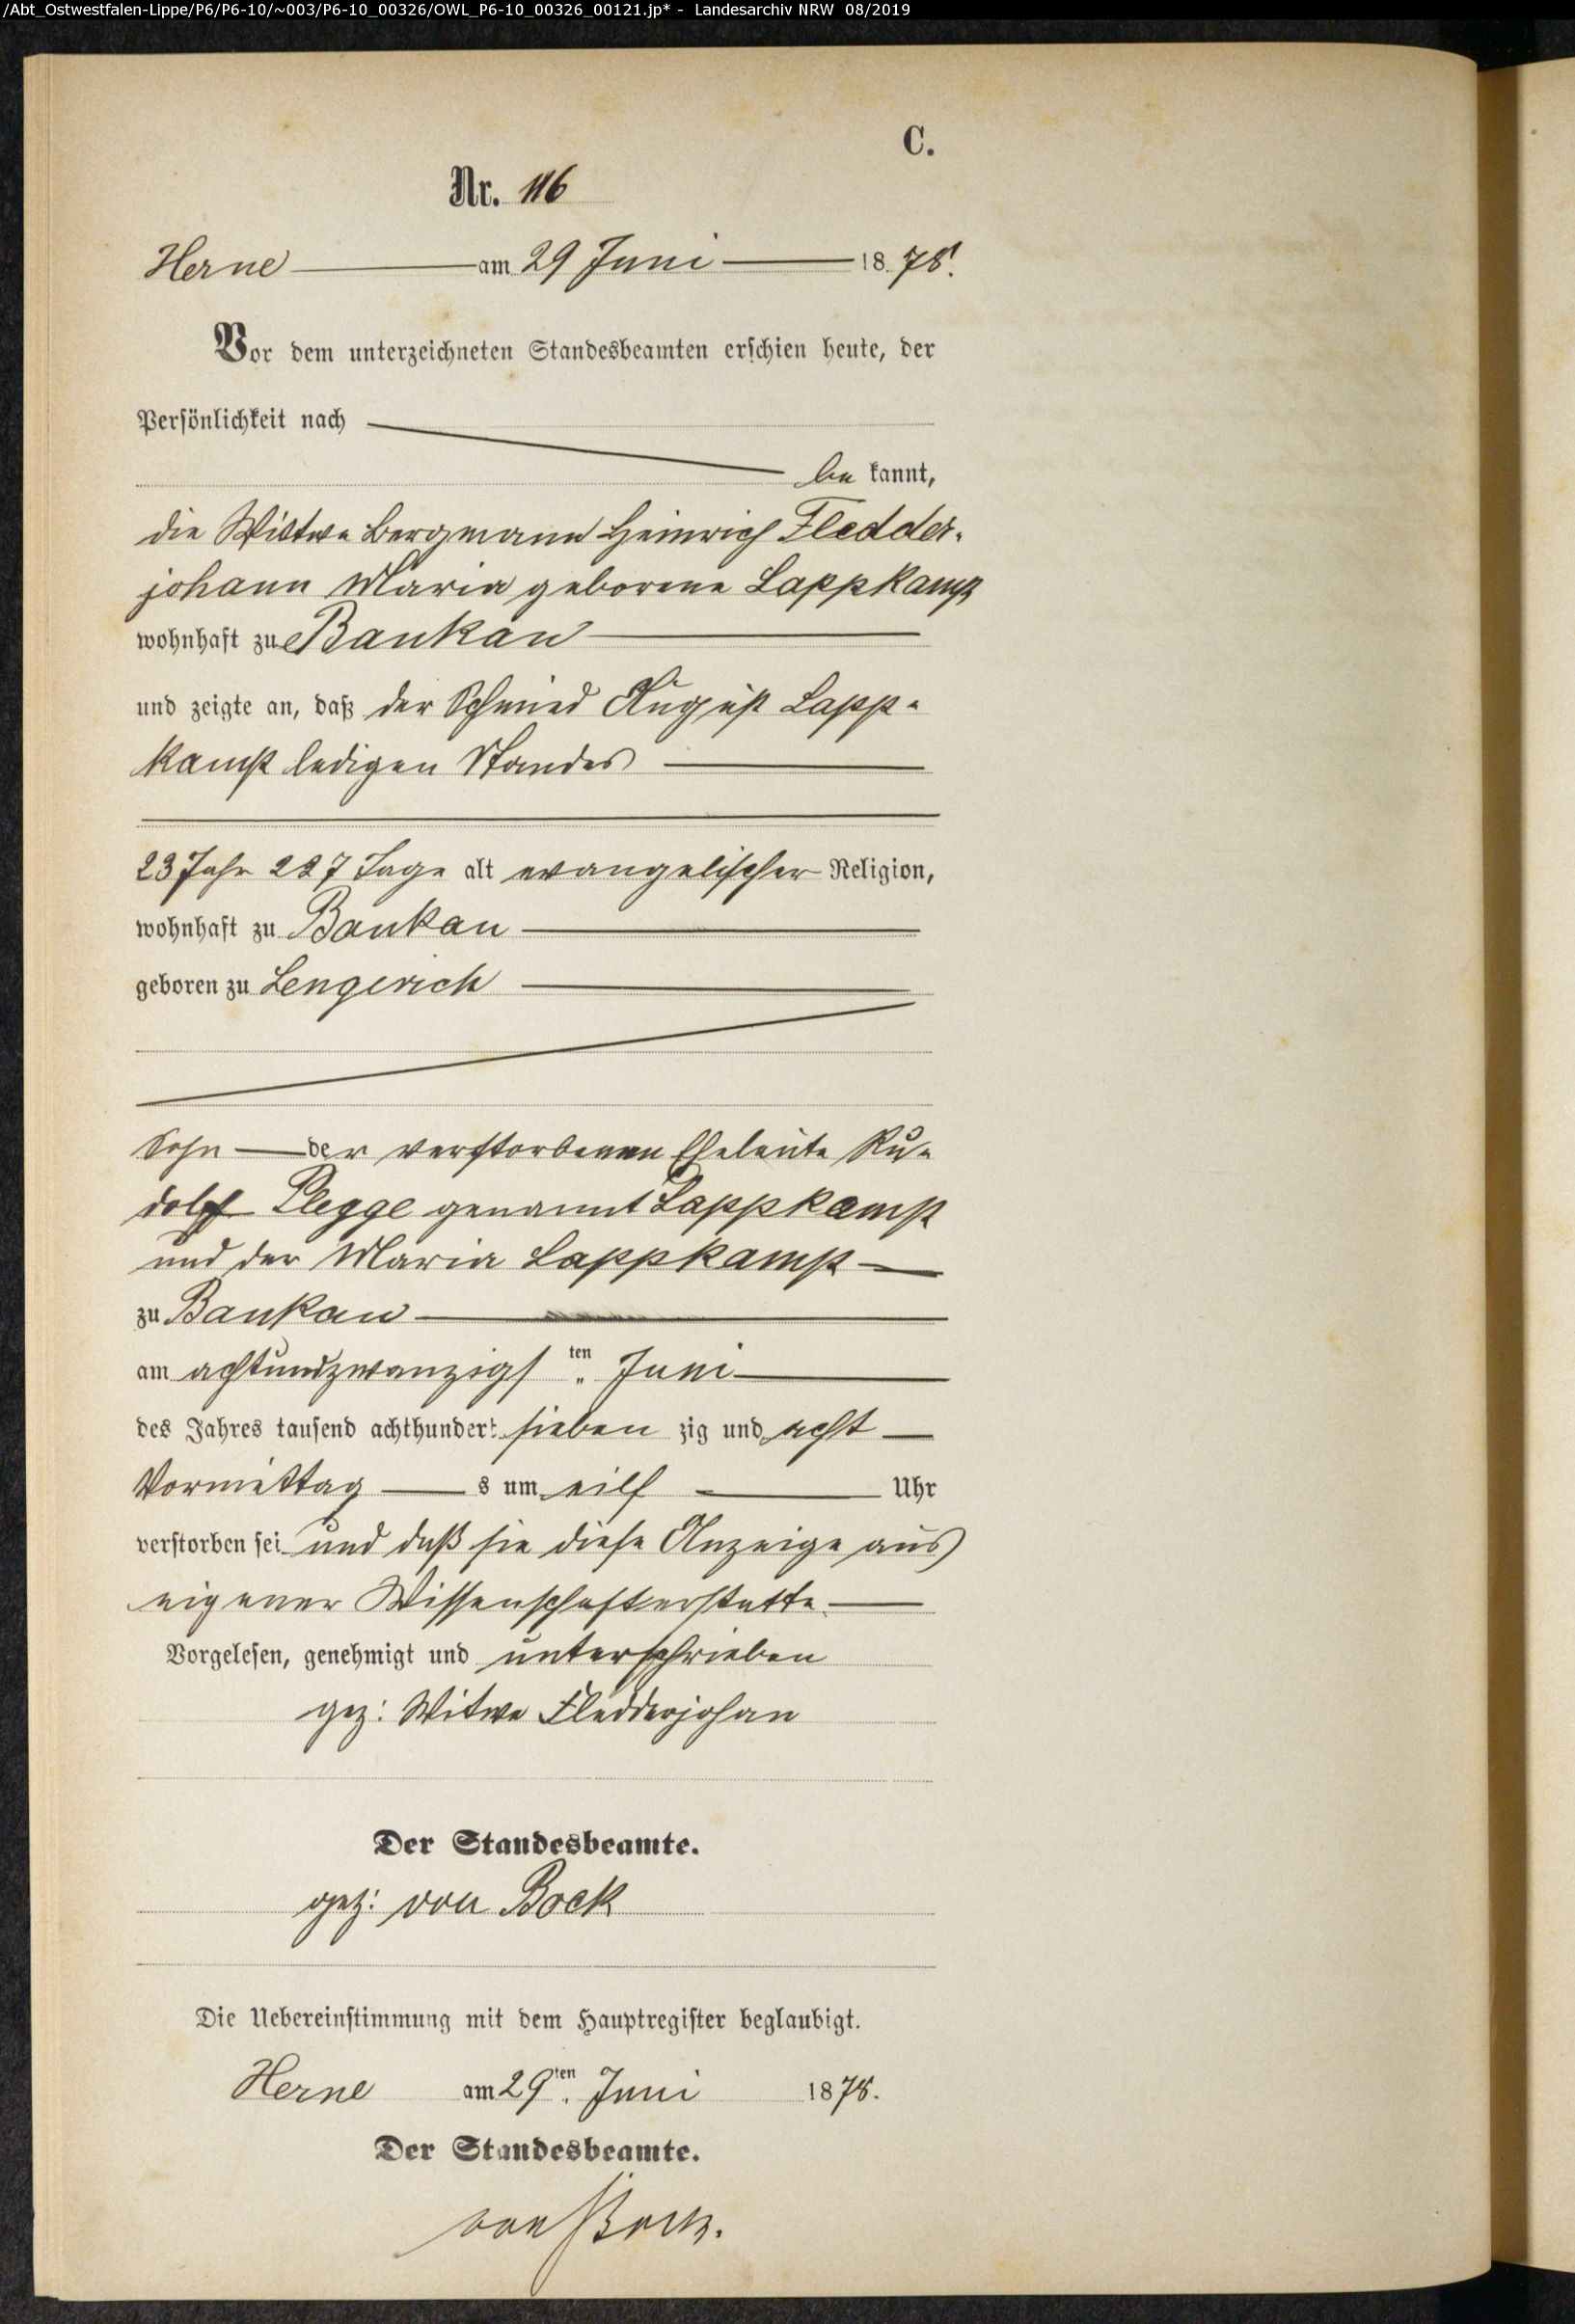 /Abt_Ostwestfalen-Lippe/P6/P6-10/~003/P6-10_00326/OWL_P6-10_00326_00121.jp* - Landesarchiv NRW 08/2019
C.
Nr. 116
Herne am 29 Juni 1878.
Vor dem unterzeichneten Standesbeamten erschien heute, der
Persönlichkeit nach
be kannt,
die Wittwe Bergmann Heinrich Fledder-
johann Maria geborene Lappkamp
wohnhaft zu Baukau
und zeigte an, daß der Schmied August Lapp-
kamp ledigen Standes
23 Jahr 287 Tage alt evangelischer Religion,
wohnhaft zu Baukau
geboren zu Lengerich
Sohn der verstorbenen Eheleute Ru-
dolf Plegge genannt Lappkamp
und der Maria Lappkamp
zu Baukau
am achtundzwanzigs ten Juni
des Jahres tausend achthundert sieben zig und acht
Vormittag s um eilf Uhr
verstorben sei und daß sie diese Anzeige aus
eigener Wissenschaft erstatte.
Vorgelesen, genehmigt und unterschrieben
gez: Witwe Fledderjohan
Der Standesbeamte.
gez: von Bock
Die Uebereinstimmung mit dem Hauptregister beglaubigt.
Herne am 29ten Juni 1878.
Der Standesbeamte.
von Bock.